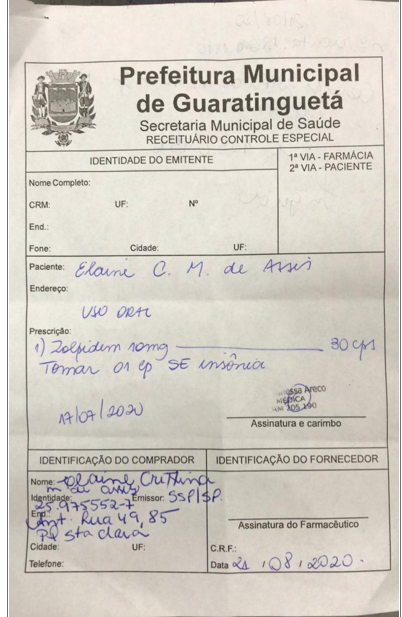 Prefeitura Municipal
de Guaratinguetá
Secretaria Municipal de Saúde
RECEITUÁRIO CONTROLE ESPECIAL
IDENTIDADE DO EMITENTE
1ª VIA - FARMÁCIA
2ª VIA - PACIENTE
Nome Completo:
CRM: UF: Nº
End.:
Fone: Cidade: UF:
Paciente: Elaine C. M. de Assis
Endereço:
USO ORAL
Prescrição:
1) Zolpidem 10mg 30 cps
Tomar 01 cp SE insônia
17/07/2020
Areco
MÉDICA
Assinatura e carimbo
IDENTIFICAÇÃO DO COMPRADOR
Nome: Elaine Cristina
m de assis
Identidade: Emissor: SSP/SP
25.975552-7
End.: Rua 49, 85
Pq sta clara
Cidade: UF:
Telefone:
IDENTIFICAÇÃO DO FORNECEDOR
Assinatura do Farmacêutico
C.R.F.:
Data 21/08/2020.